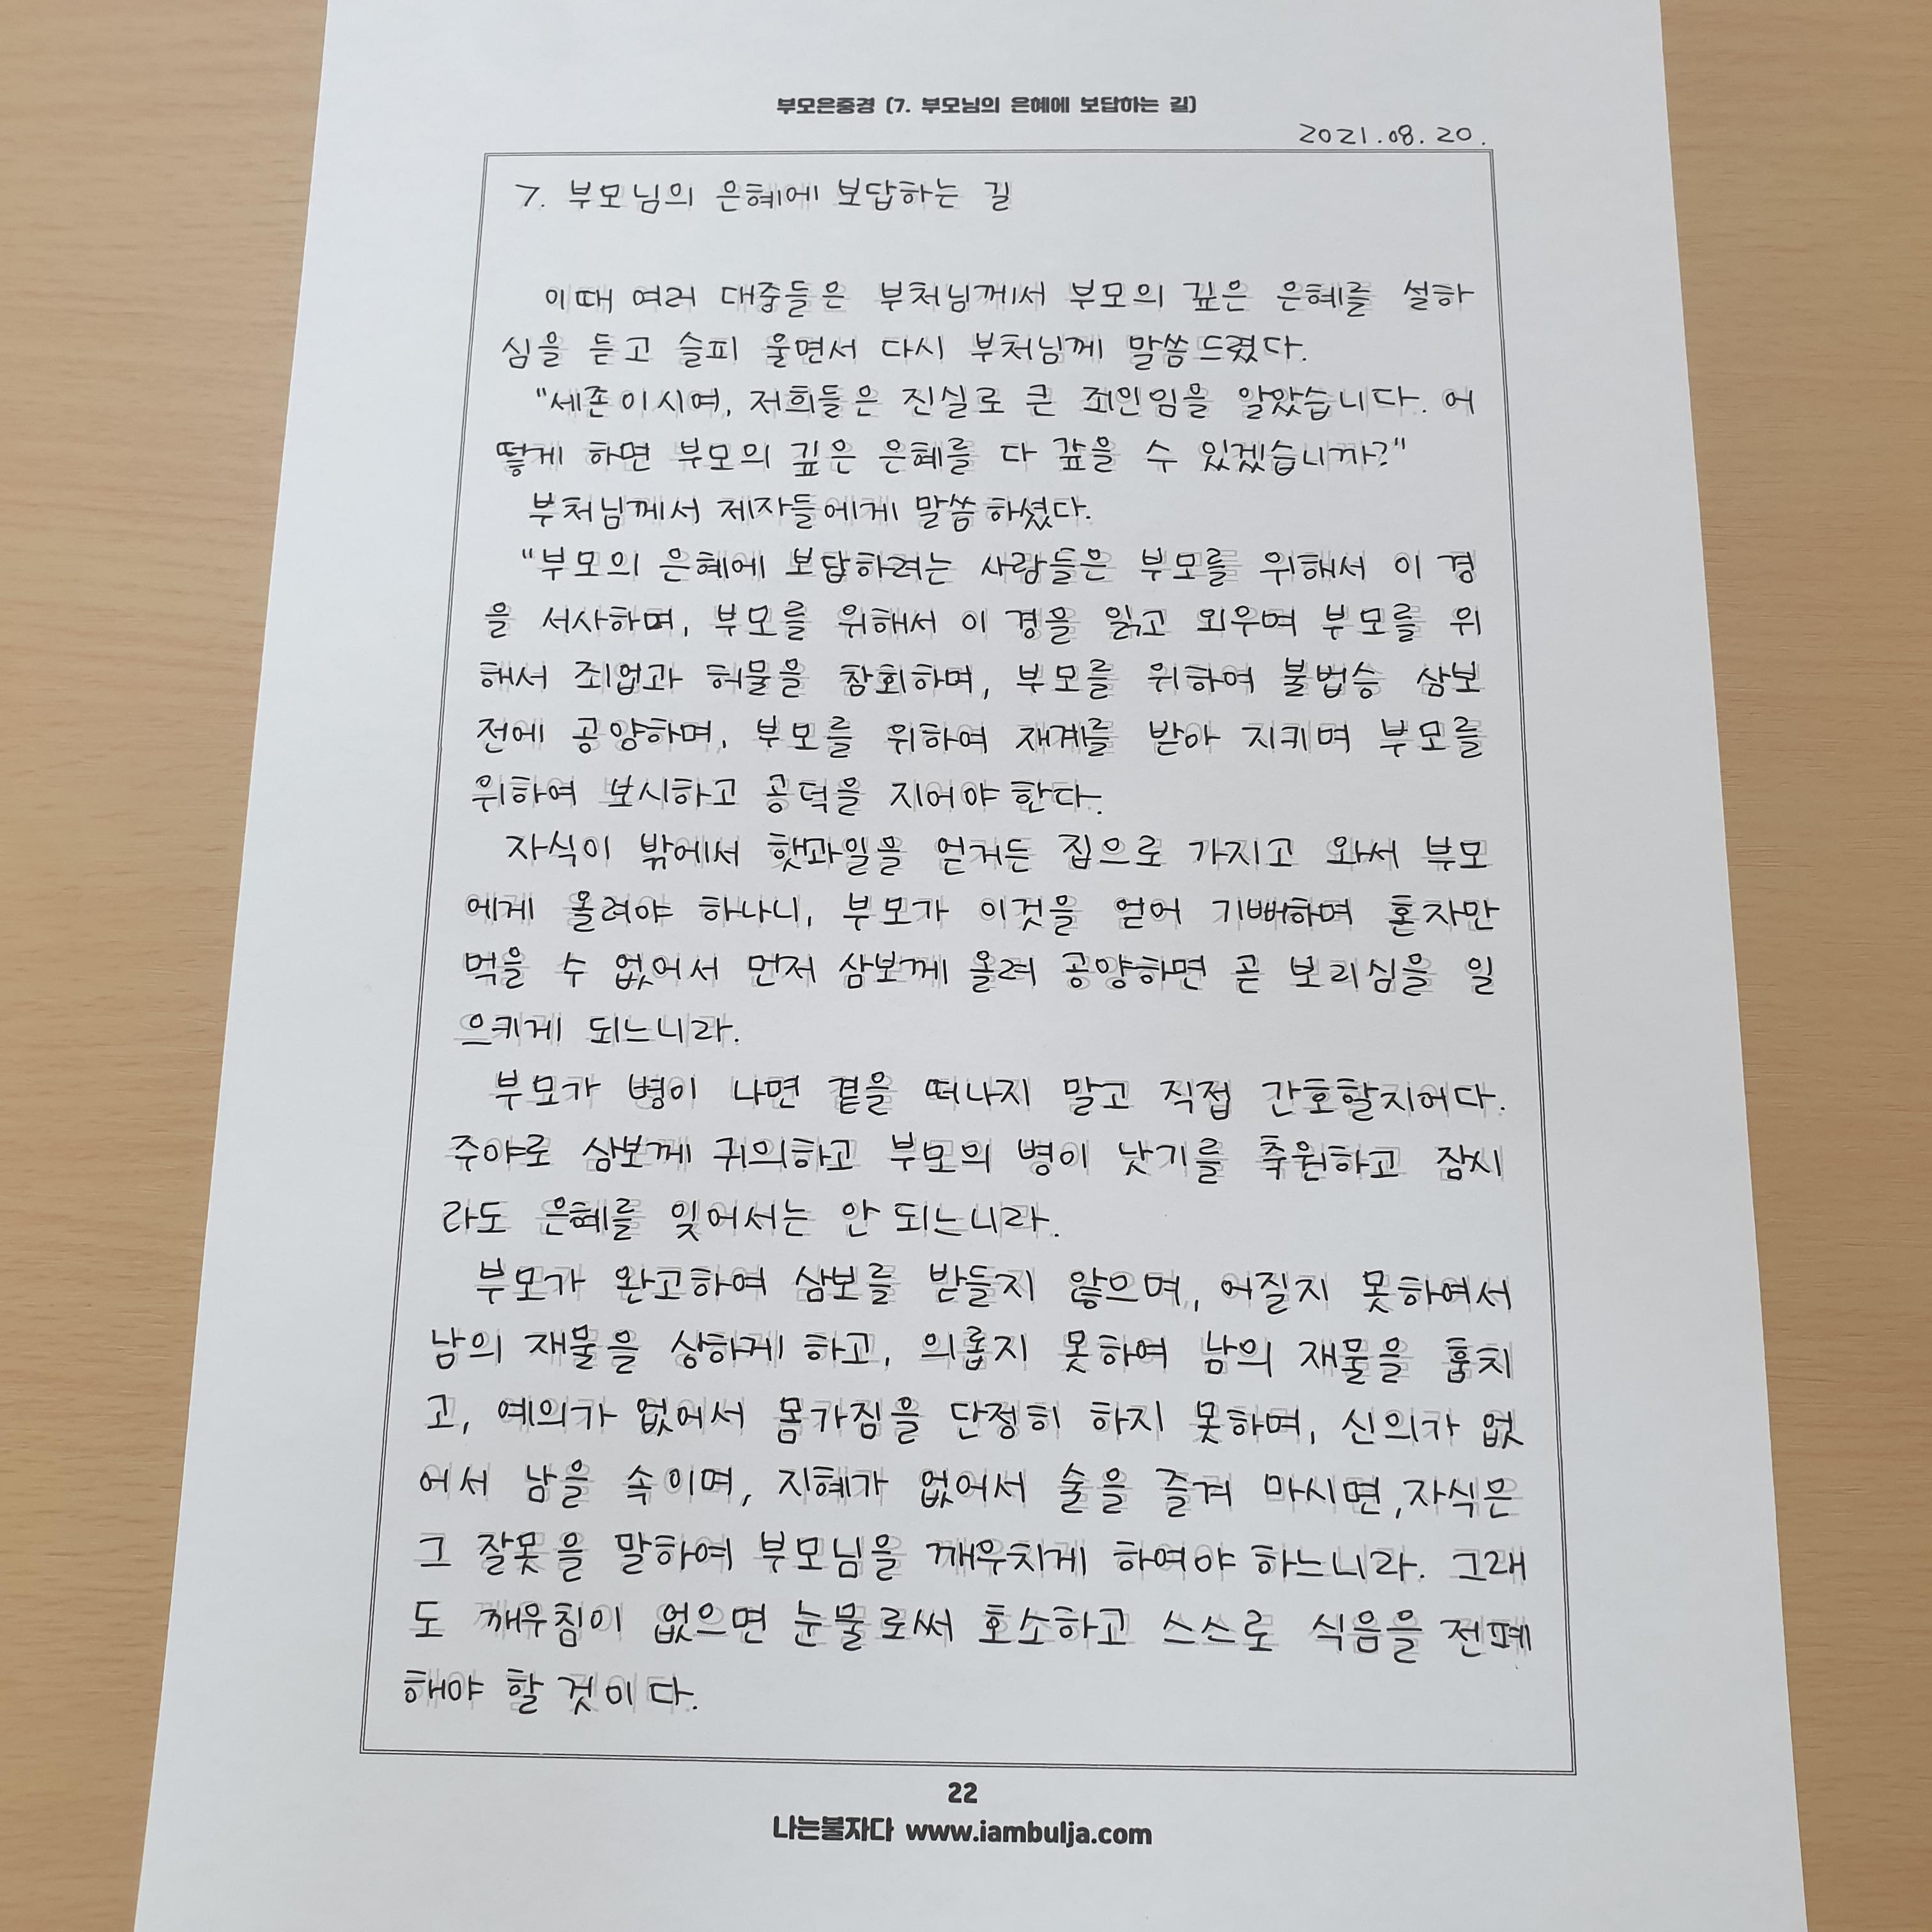 부모은중경 (7. 부모님의 은혜에 보답하는 길)
2021.08.20.
7. 부모님의 은혜에 보답하는 길
이때 여러 대중들은 부처님께서 부모의 깊은 은혜를 설하
심을 듣고 슬피 울면서 다시 부처님께 말씀드렸다.
"세존이시여, 저희들은 진실로 큰 죄인임을 알았습니다. 어
떻게 하면 부모의 깊은 은혜를 다 갚을 수 있겠습니까?"
부처님께서 제자들에게 말씀하셨다.
"부모의 은혜에 보답하려는 사람들은 부모를 위해서 이 경
을 서사하며, 부모를 위해서 이 경을 읽고 외우며 부모를 위
해서 죄업과 허물을 참회하며, 부모를 위하여 불법승 삼보
전에 공양하며, 부모를 위하여 재계를 받아 지키며 부모를
위하여 보시하고 공덕을 지어야 한다.
자식이 밖에서 햇과일을 얻거든 집으로 가지고 와서 부모
에게 올려야 하나니, 부모가 이것을 얻어 기뻐하며 혼자만
먹을 수 없어서 먼저 삼보께 올려 공양하면 곧 보리심을 일
으키게 되느니라.
부모가 병이 나면 곁을 떠나지 말고 직접 간호할지어다.
주야로 삼보께 귀의하고 부모의 병이 낫기를 축원하고 잠시
라도 은혜를 잊어서는 안 되느니라.
부모가 완고하여 삼보를 받들지 않으며, 어질지 못하여서
남의 재물을 상하게 하고, 의롭지 못하여 남의 재물을 훔치
고, 예의가 없어서 몸가짐을 단정히 하지 못하며, 신의가 없
어서 남을 속이며, 지혜가 없어서 술을 즐겨 마시면, 자식은
그 잘못을 말하여 부모님을 깨우치게 하여야 하느니라. 그래
도 깨우침이 없으면 눈물로써 호소하고 스스로 식음을 전폐
해야 할 것이다.
22
나는불자다 www.iambulja.com